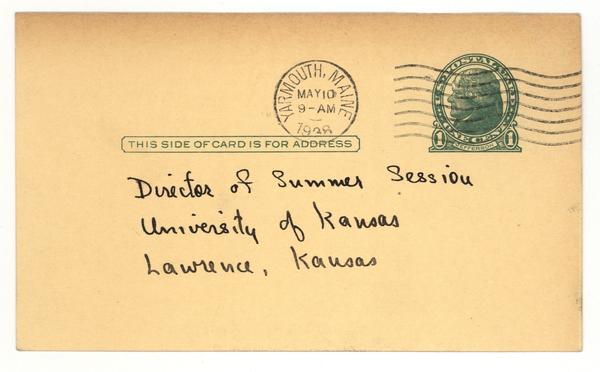 YARMOUTH, MAINE
MAY 10
9-AM
1938
1 JEFFERSON 1
THIS SIDE OF CARD IS FOR ADDRESS
Director of Summer Session
University of Kansas
Lawrence, Kansas